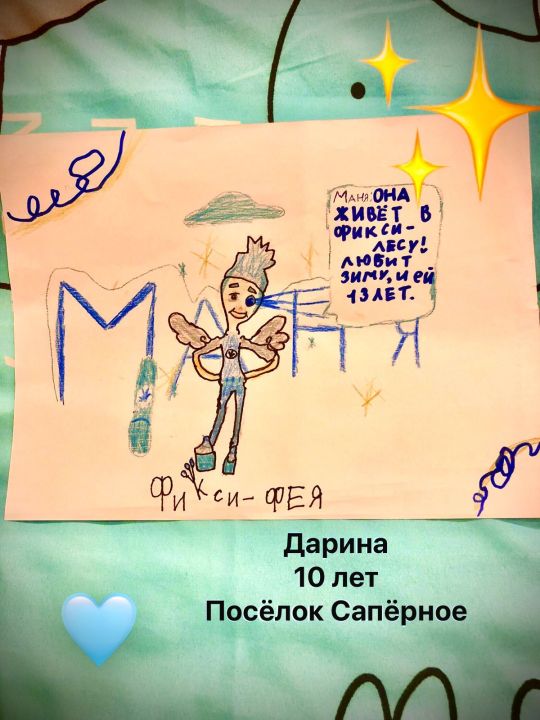 Маня: ОНА
ЖИВЁТ В
ФИКСИ-
ЛЕСУ!
ЛЮБИТ
ЗИМУ, И ЕЙ
13 ЛЕТ.
МАНЯ
Фикси-ФЕЯ
Дарина
10 лет
Посёлок Сапёрное